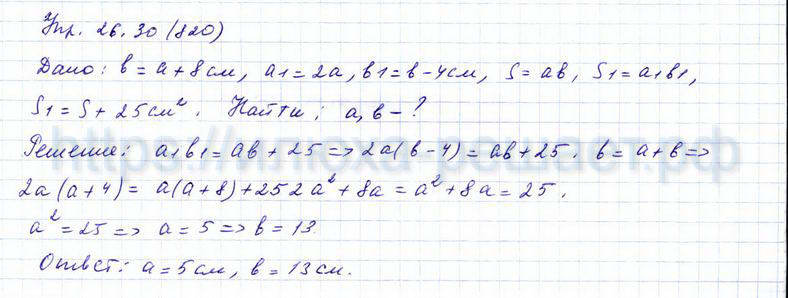 Упр. 26.30 (820)
Дано: в = а + 8 см, а1 = 2а, в1 = в - 4 см, S = ав, S1 = а1в1,
S1 = S + 25 см². Найти: а, в - ?
Решение: а1в1 = ав + 25 => 2а(в - 4) = ав + 25. в = а + в =>
2а(а + 4) = а(а + 8) + 25 2а² + 8а = а² + 8а = 25.
а² = 25 => а = 5 => в = 13
Ответ: а = 5 см, в = 13 см.